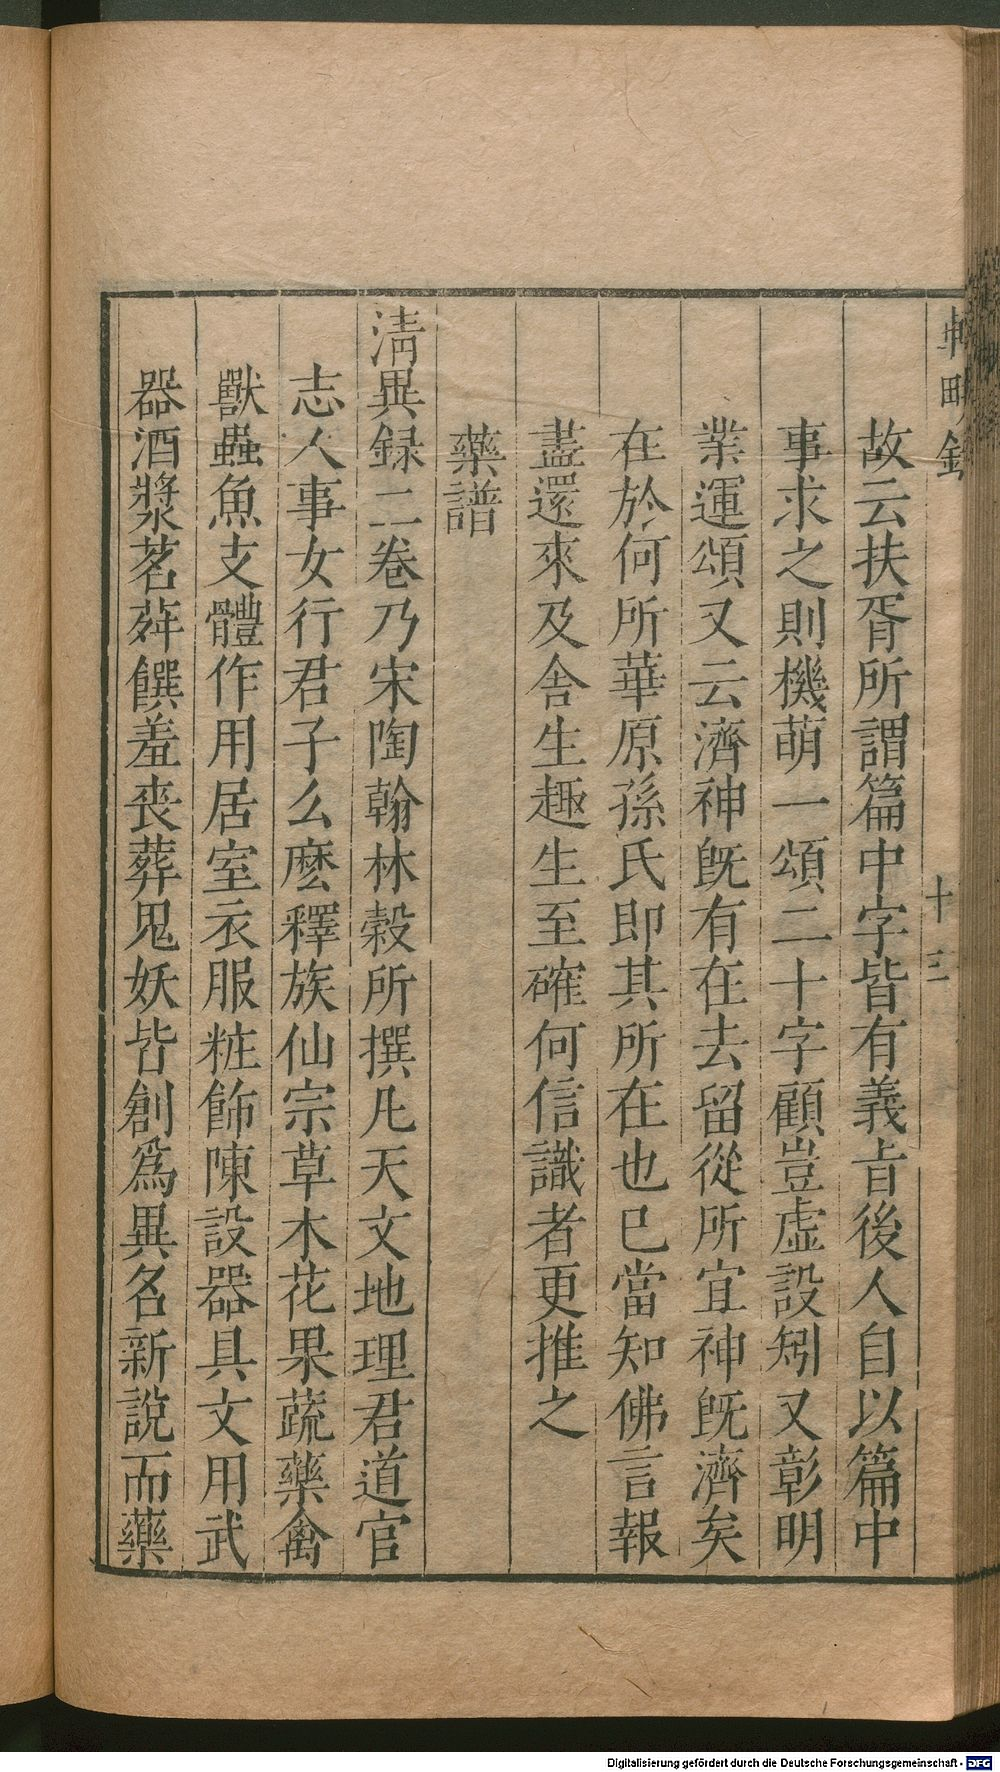 故云扶胥所謂篇中字皆有義㫖後人自以篇中
事求之則機萌一頌二十字顧豈虛設矧又彰明
業運頌又云濟神旣有在去留從所宜神旣濟矣
在於何所華原孫氏即其所在也已當知佛言報
盡還來及舍生趣生至確何信識者更推之
藥譜
淸異録二卷乃宋陶翰林穀所撰凡天文地理君道官
志人事女行君子么麽釋族仙宗草木花果蔬藥禽
獸蟲魚支體作用居室衣服粧飾陳設器具文用武
器酒漿茗荈饌羞喪葬鬼妖皆創爲異名新說而藥
十三
Digitalisierung gefördert durch die Deutsche Forschungsgemeinschaft - DFG